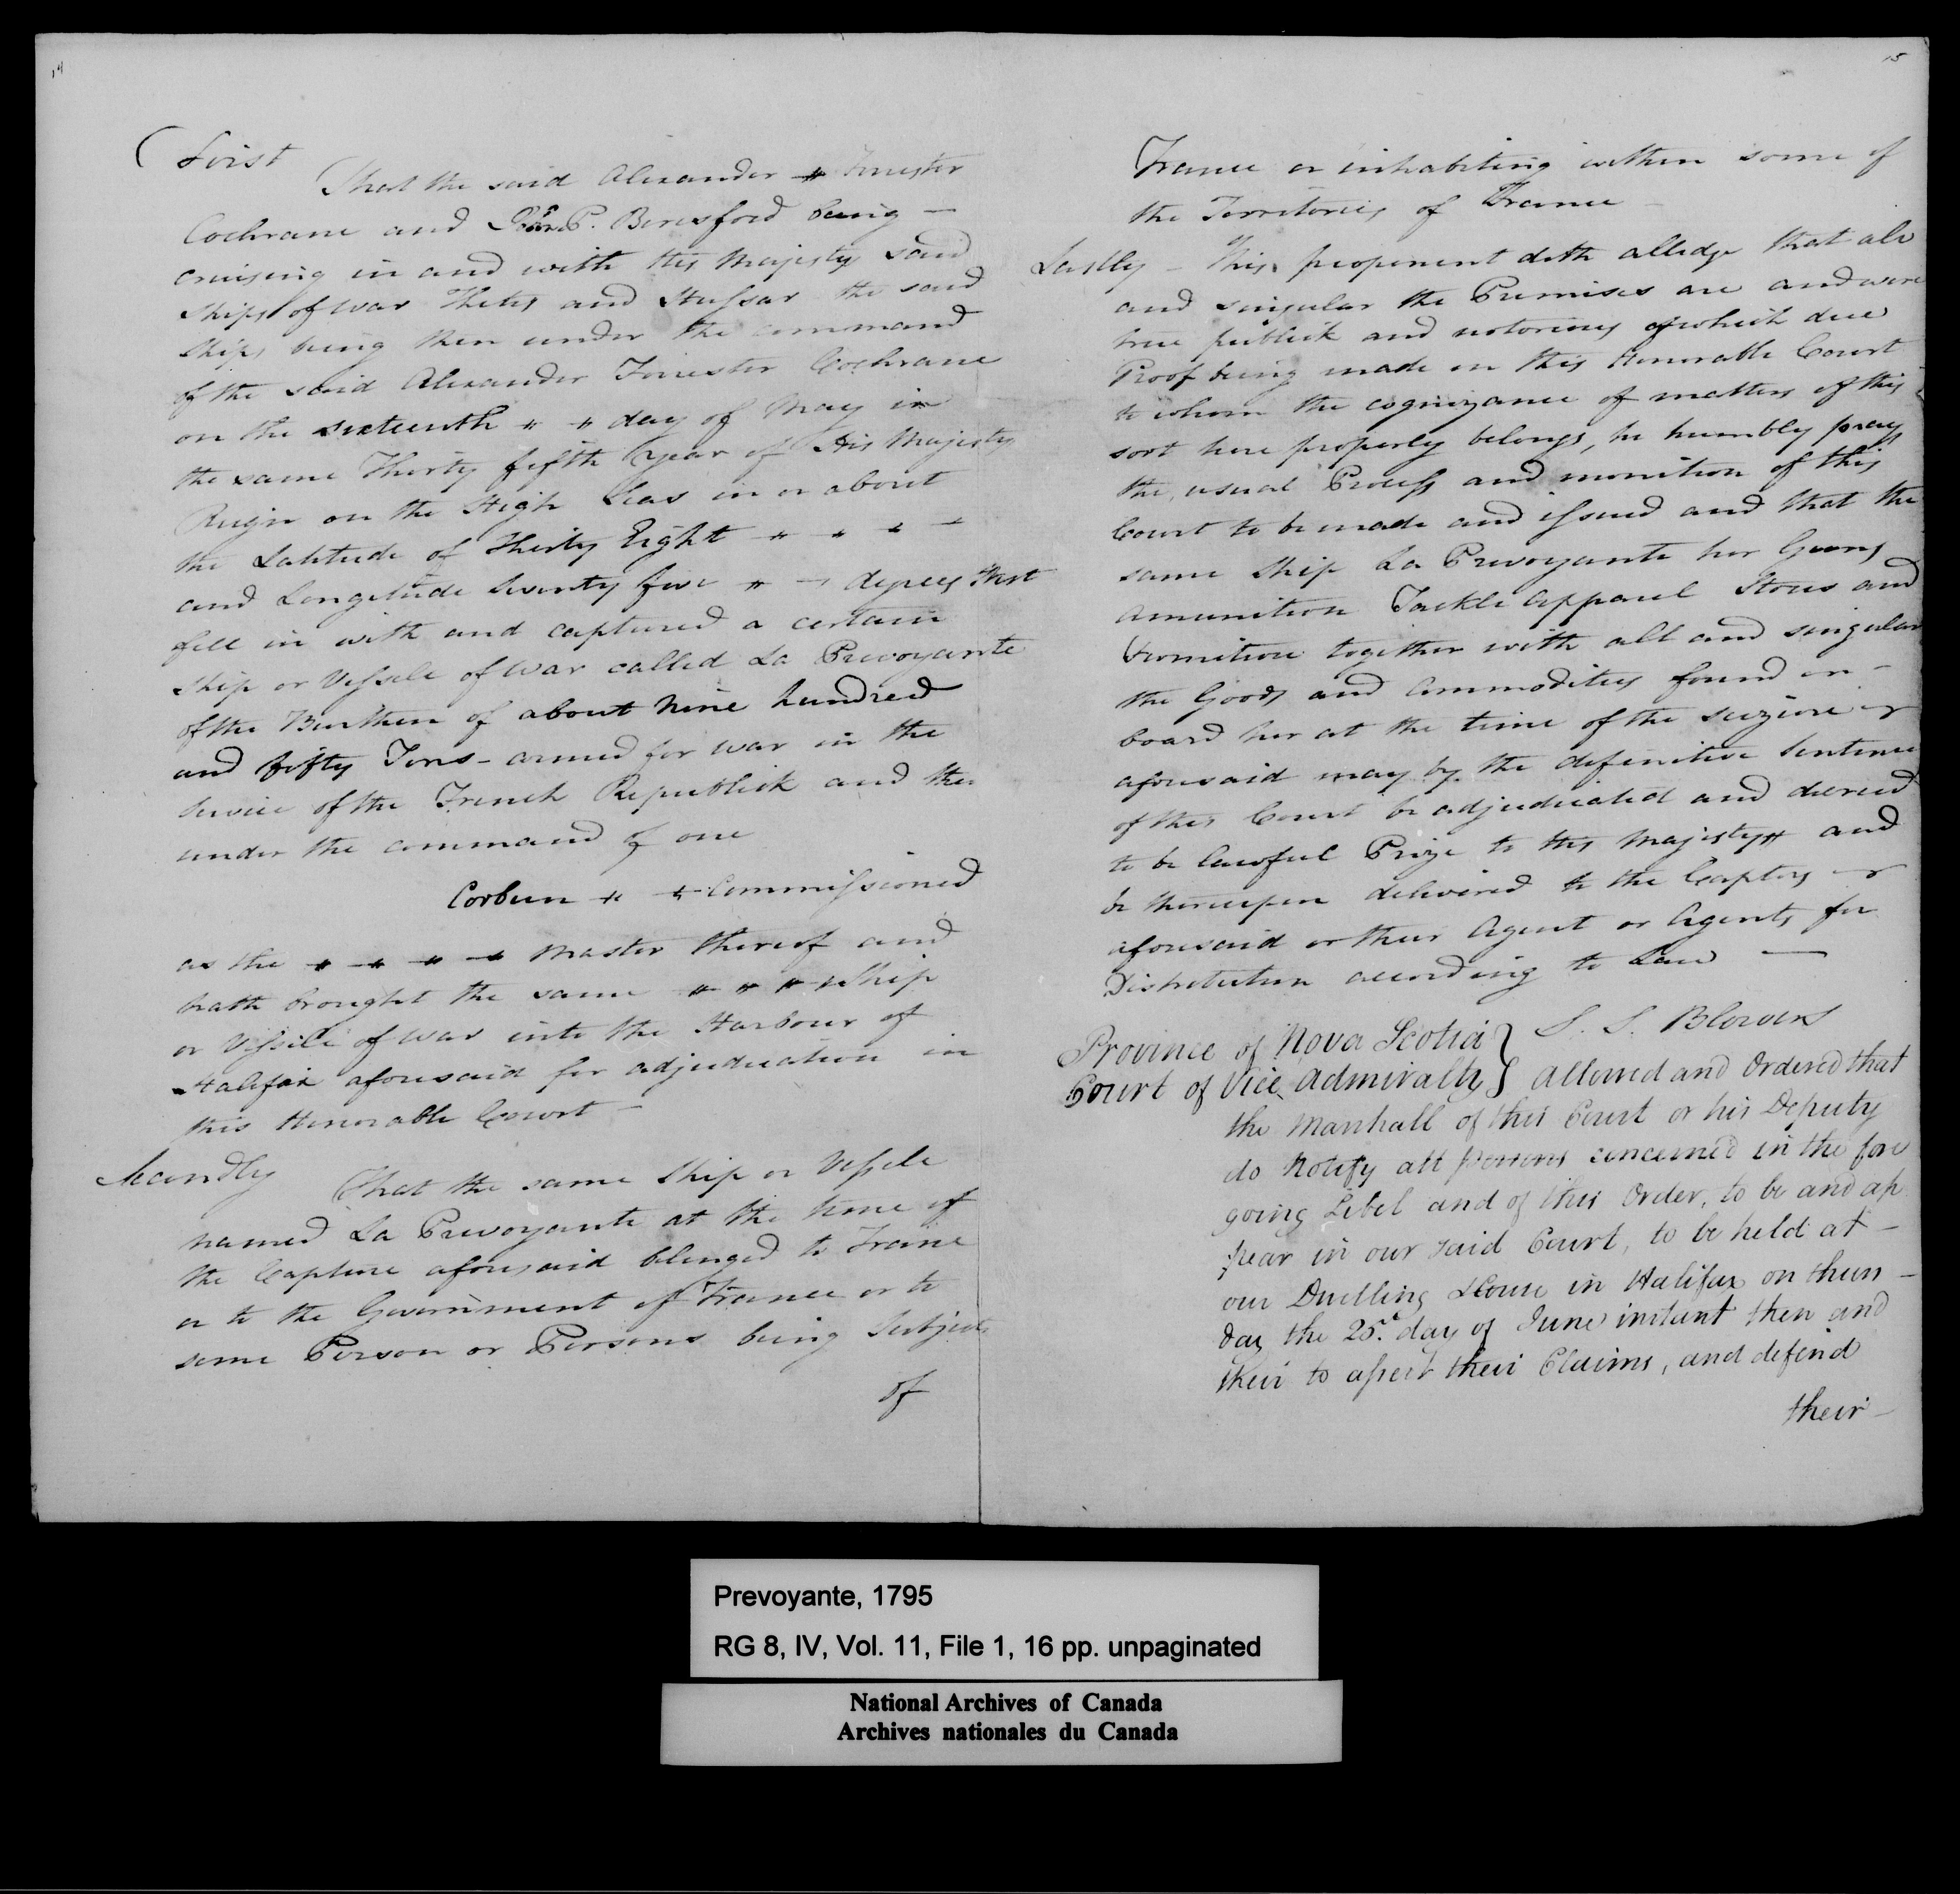 14
First
That the said Alexander Forrester
Cochrane and P. Beresford being —
cruising in and with His Majesty said
Ships of War Thetis and Hussar the said
Ships being then under the command
of the said Alexander Forrester Cochrane
on the sixteenth day of May in
the same Thirty fifth Year of His Majesty
Reign on the High Seas in or about
the Latitude of Thirty Eight
and Longitude Seventy five degrees West
fell in with and captured a certain
Ship or Vessele of War called La Prevoyante
of the Burthen of about nine hundred
and fifty Tons - armed for war in the
Service of the French Republick and then
under the command of one
Corbun Commissioned
as the Master thereof and
hath brought the same Ship
or Vessele of War into the Harbour of
Halifax aforesaid for adjudication in
this Honorable Court —
Secondly That the same Ship or Vessele
named La Prevoyante at the time of
the Capture aforesaid blonged to France
or to the Government of France or to
some Person or Persons being Subjects
of
15
France or inhabiting within some of
the Territories of France —
Lastly — This proponent doth alledge that all
and singular the Premises are and were
true publick and notorious of which due
Proof being made in this Honorable Court
to whom the cognizance of matters of this
sort here properly belongs, he humbly prays
the usual Process and monition of this
Court to be made and issued and that the
same Ship La Prevoyante her Guns
Amunition Tackle Apparel Stores and
Furniture together with all and singular
the Goods and Commodities found on —
board her at the time of the seizure
aforesaid may by the definitive Sentence
of this Court be adjudicated and decreed
to be lawful Prize to His Majesty and
be thereupon delivered to the Captors
aforesaid or their Agent or Agents for
Distribution according to Law —
S. S. Blowers
Province of Nova Scotia }
Court of Vice Admiralty } Allowed and Ordered that
the Marshall of this Court or his Deputy
do Notify all persons concerned in the fore
going Libel and of this Order, to be and ap
pear in our said Court, to be held at —
our Dwelling House in Halifax on thurs —
day the 25.t day of June instant then and
their to assert their Claims, and defend
their —
Prevoyante, 1795
RG 8, IV, Vol. 11, File 1, 16 pp. unpaginated
National Archives of Canada
Archives nationales du Canada